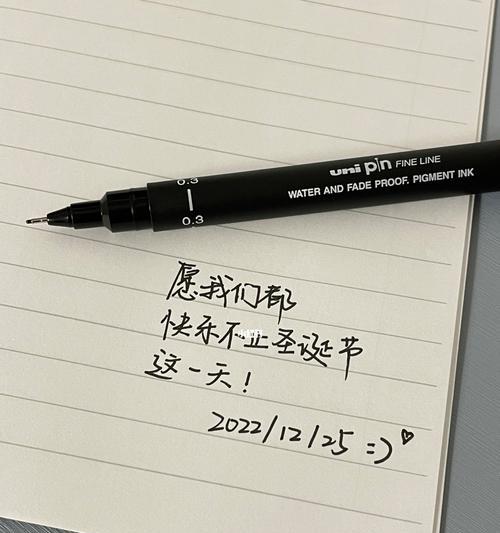 uni pin FINE LINE
WATER AND FADE PROOF. PIGMENT INK
0.3
0.3
愿我们都
快乐不止圣诞节
这一天！
2022/12/25 =) ♡